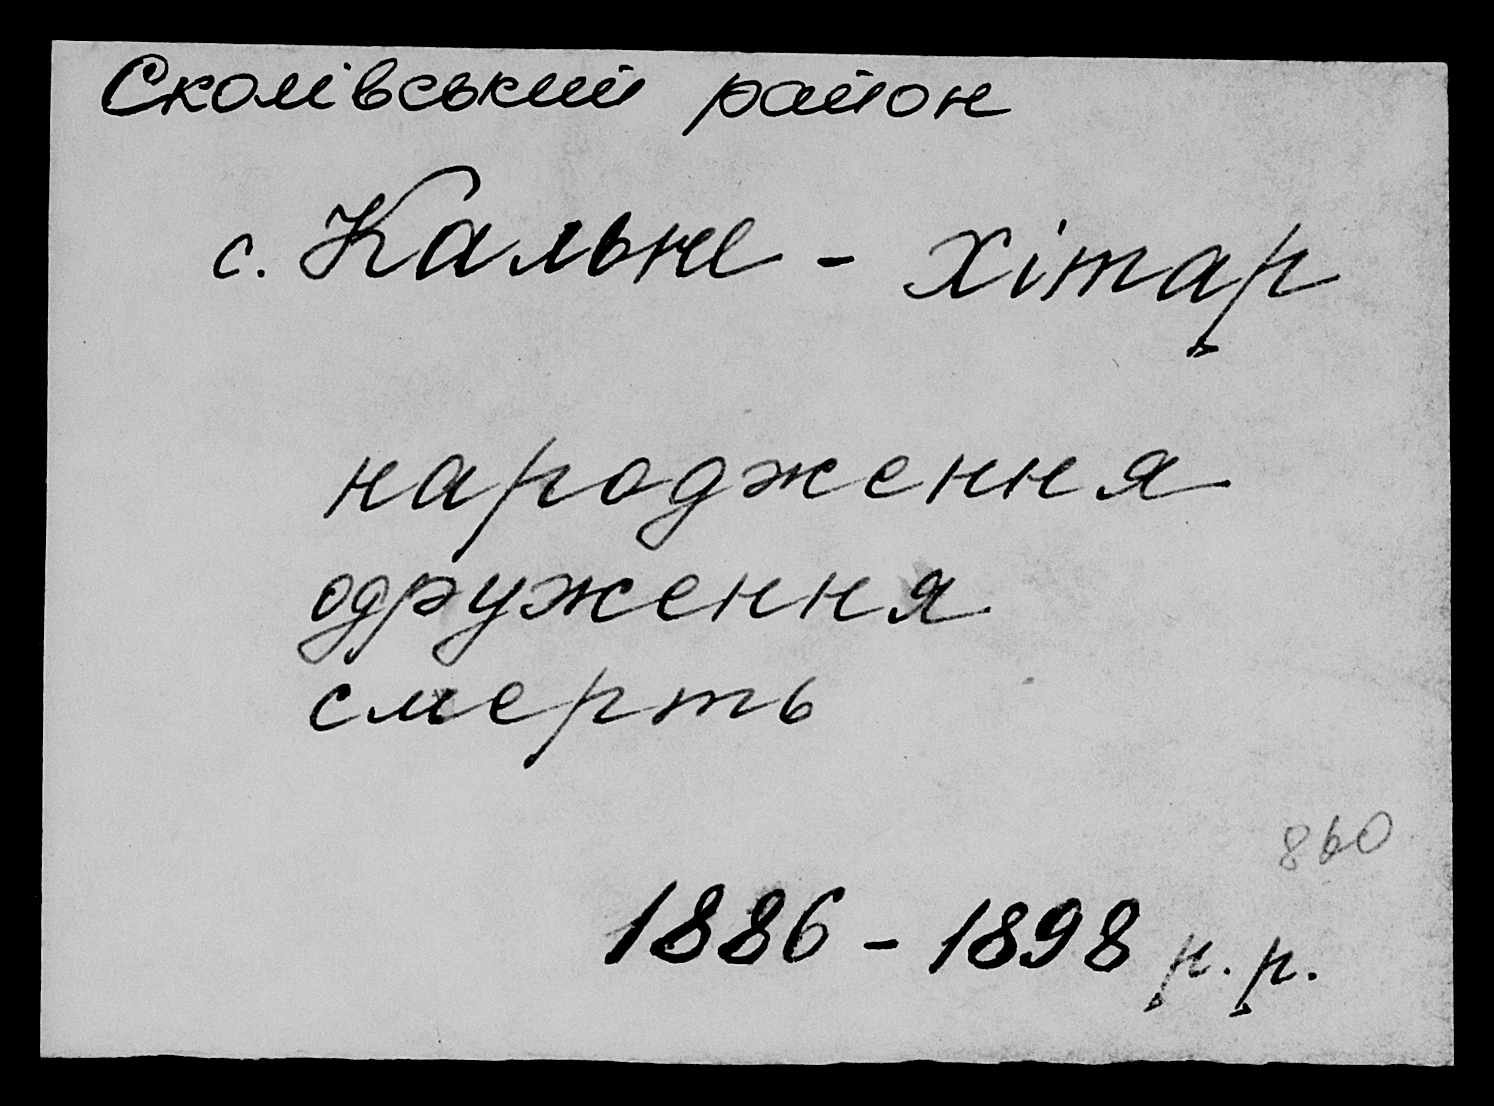 Сколівський район
с. Кальне - Хітар
народження
одруження
смерть
860
1886 - 1898 р. р.